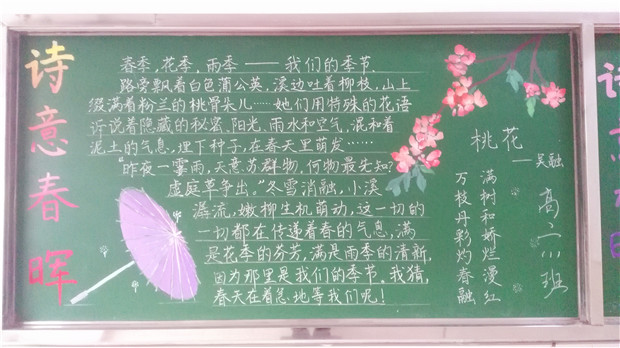 诗意春晖
春季,花季,雨季——我们的季节.
路旁飘着白色蒲公英,溪边吐着柳枝,山上
缀满着粉兰的桃骨朵儿……她们用特殊的花语
诉说着隐藏的秘密.阳光,雨水和空气,混和着
泥土的气息,埋下种子,在春天里萌发……
"昨夜一霎雨,天意苏群物.何物最先知?
虚庭草争出,"冬雪消融,小溪
潺流,嫩柳生机萌动,这一切的
一切都在传递着春的气息,满
是花季的芬芳,满是雨季的清新,
因为那里是我们的季节.我猜,
春天在着急地等我们呢!
桃花
——吴融
满树和娇烂漫红
万枝丹彩灼春融
高二(1)班